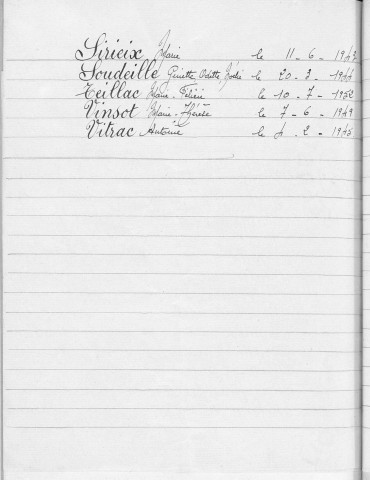 Sirieix Marie le 11 - 6 - 194
Soudeille Ginette Odette le 20 - 2 - 1944
Teillac Marie - le 10 - 7 - 1952
Vinsot Marie - Thérèse le 7 - 6 - 1949
Vitrac Antoine le 4 - 2 - 1945